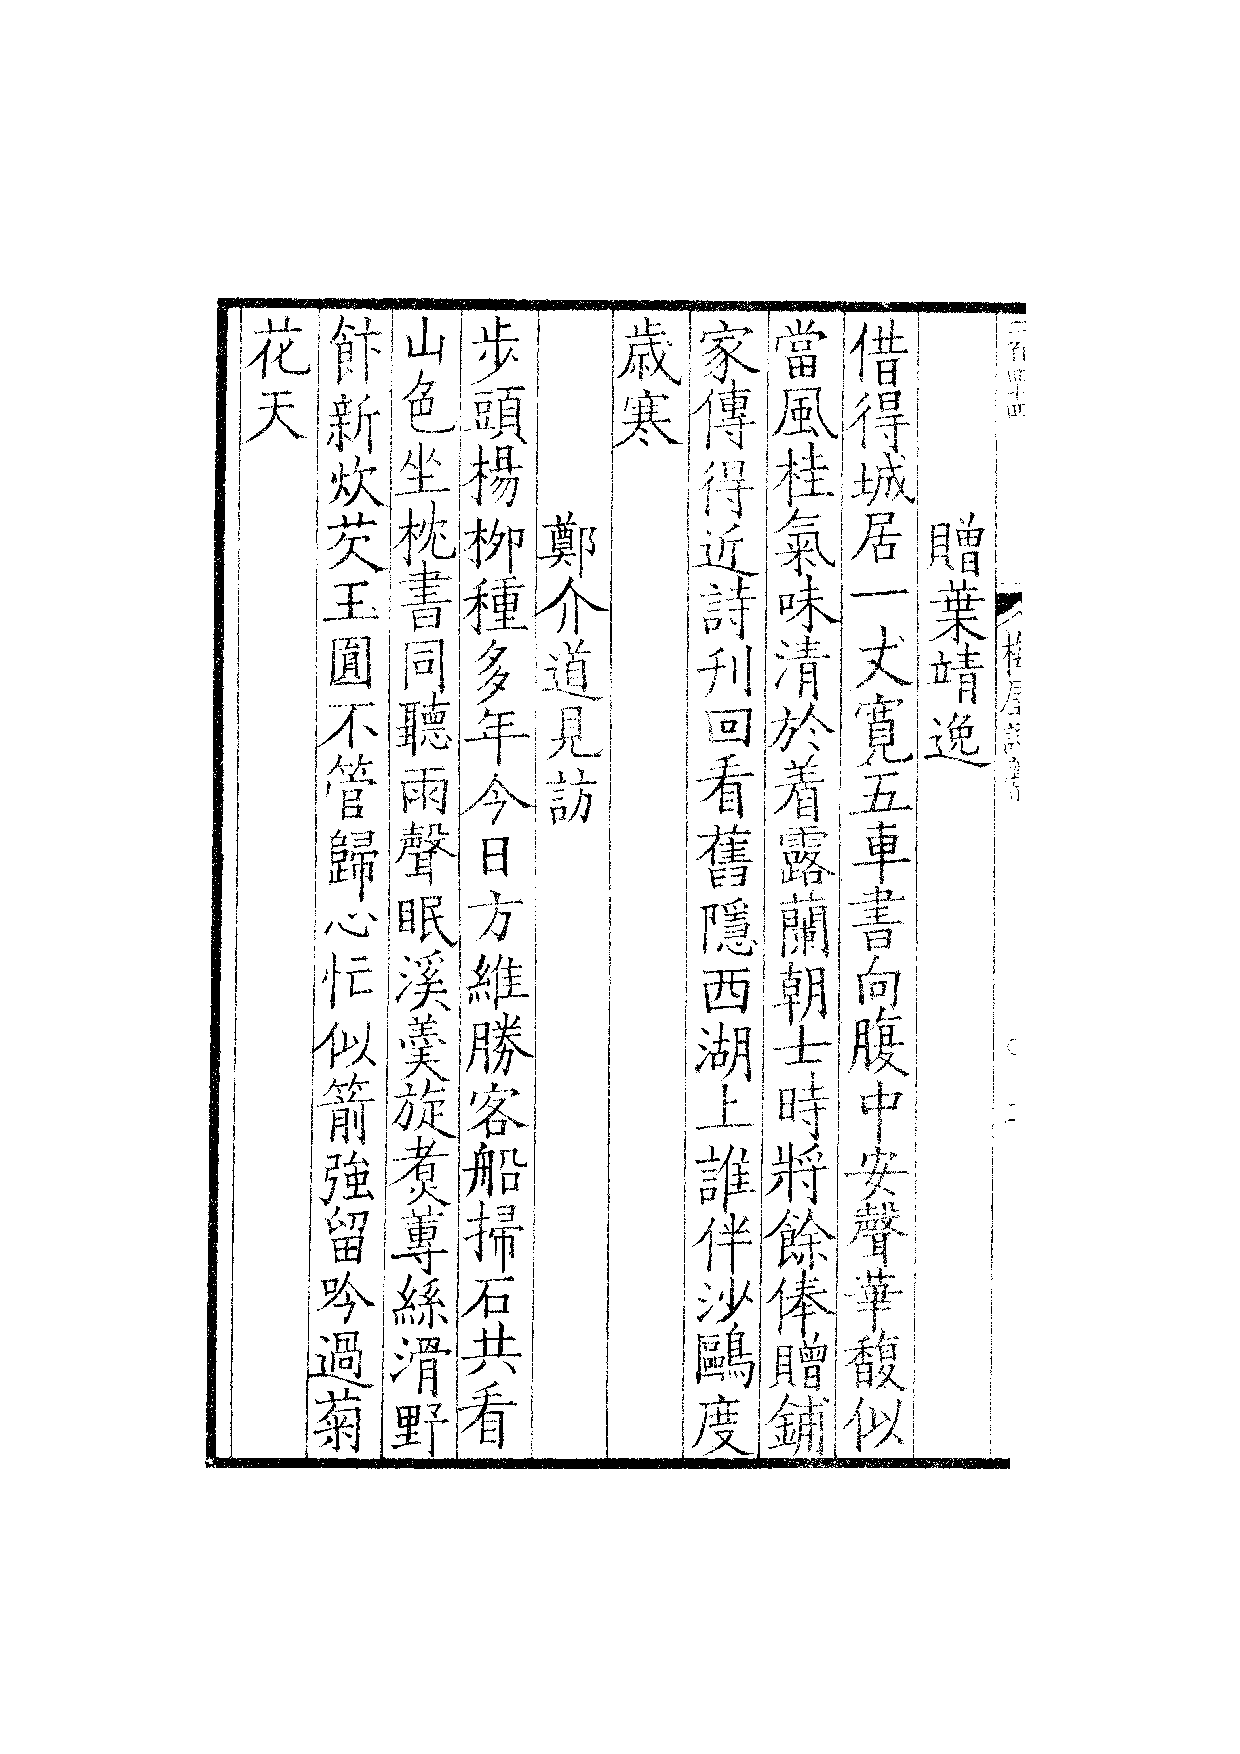 贈葉靖逸
借得城居一丈寛五車書向腹中安聲華馥似
當風桂氣味清於着露蘭朝士時將餘俸贈鋪
家傳得近詩刋回看舊隱西湖上誰伴沙鷗度
歳寒
鄭介道見訪
步頭楊栁種多年今日方維勝客船掃石共看
山色坐枕書同聽雨聲眠溪羹旋煮蓴絲滑野
飰新炊芡玉圎不管歸心忙似箭強留吟過菊
花天